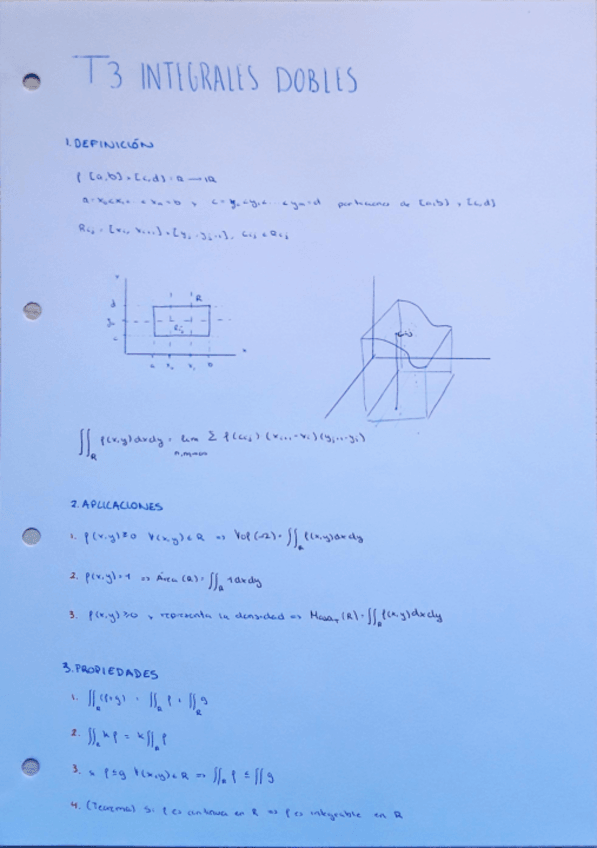 T3 INTEGRALES DOBLES
1. DEFINICIÓN
f [a,b] × [c,d] = R → ℝ
a = x₀ < x₁ ... < xₙ = b y c = y₀ < y₁ < ... < yₘ = d particiones de [a,b] y [c,d]
Rᵢⱼ = [xᵢ, xᵢ₊₁] × [yⱼ, yⱼ₊₁], cᵢⱼ ∈ Rᵢⱼ
R
Rᵢⱼ
∬_R f(x,y)dxdy = lim Σ f(cᵢⱼ) (xᵢ₊₁ - xᵢ) (yⱼ₊₁ - yⱼ)
n,m→∞
2. APLICACIONES
1. f(x,y) ≥ 0 ∀(x,y) ∈ R ⇒ Vol(Ω) = ∬_R f(x,y)dxdy
2. f(x,y) = 1 ⇒ Área (R) = ∬_R 1dxdy
3. f(x,y) ≥ 0 y representa la densidad ⇒ Masa (R) = ∬_R f(x,y)dxdy
3. PROPIEDADES
1. ∬_R (f+g) = ∬_R f + ∬_R g
2. ∬_R k f = k ∬_R f
3. f ≤ g ∀(x,y) ∈ R ⇒ ∬_R f ≤ ∬ g
4. (Teorema) Si f es continua en R ⇒ f es integrable en R